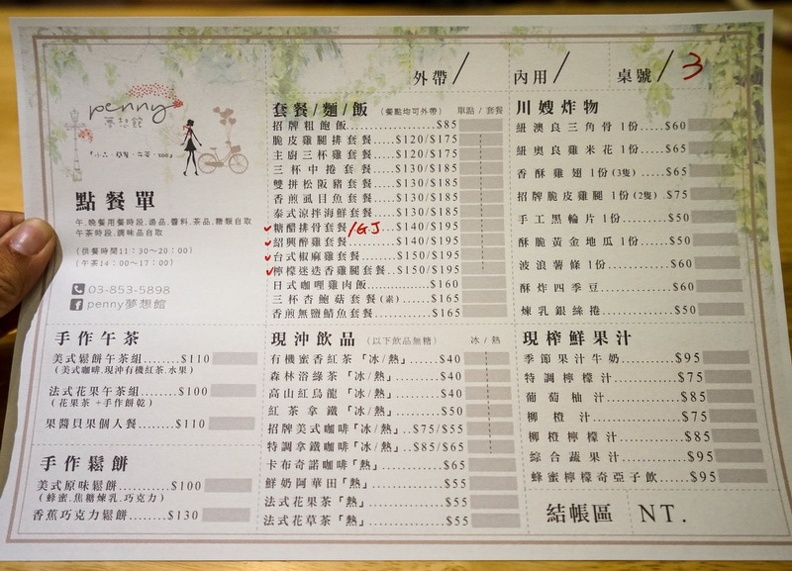 外帶 /
內用 /
桌號 / 3
penny
夢想館
點餐單
午.晚餐用餐時段,湯品.醬料.茶品.糖類自取
午茶時段,調味品自取
(供餐時間11:30~20:00)
(午茶14:00~17:00)
03-853-5898
penny夢想館
套餐/麵/飯 (餐點均可外帶) 單點 / 套餐
招牌粗飽飯 $85
脆皮雞腿排套餐 $120/$175
主廚三杯雞套餐 $120/$175
三杯中捲套餐 $130/$185
雙拼松阪豬套餐 $130/$185
香煎虱目魚套餐 $130/$185
泰式涼拌海鮮套餐 $130/$185
糖醋排骨套餐 /G.J $140/$195
紹興醉雞套餐 $140/$195
台式椒麻雞套餐 $150/$195
檸檬迷迭香雞腿套餐 $150/$195
日式咖哩雞肉飯 $160
三杯杏鮑菇套餐(素) $165
香煎無鹽鯖魚套餐 $165
川嫂炸物
紐澳良三角骨 1份.....$60
紐奧良雞米花 1份.....$65
香酥雞翅 1份(3隻) $65
招牌脆皮雞腿 1份(2隻) .$75
手工黑輪片 1份 $50
酥脆黃金地瓜 1份 $50
波浪薯條 1份 $60
酥炸四季豆 $60
煉乳銀絲捲 $50
手作午茶
美式鬆餅午茶組 $110
(美式咖啡.現沖有機紅茶.水果)
法式花果午茶組 $100
(花果茶 +手作餅乾)
果醬貝果個人餐 $110
手作鬆餅
美式原味鬆餅 $100
(蜂蜜.焦糖煉乳.巧克力)
香蕉巧克力鬆餅 $130
現沖飲品 (以下飲品無糖) 冰 / 熱
有機蜜香紅茶「冰/熱」 $40
森林浴綠茶「冰/熱」 $40
高山紅烏龍「冰/熱」 $40
紅茶拿鐵「冰/熱」 $50
招牌美式咖啡「冰/熱」 $75/$55
特調拿鐵咖啡「冰/熱」 $85/$65
卡布奇諾咖啡「熱」 $65
鮮奶阿華田「熱」 $55
法式花果茶「熱」 $55
法式花草茶「熱」 $55
現榨鮮果汁
季節果汁牛奶 $95
特調檸檬汁 $75
葡萄柚汁 $85
柳橙汁 $75
柳橙檸檬汁 $85
綜合蔬果汁 $95
蜂蜜檸檬奇亞子飲 $95
結帳區 NT.